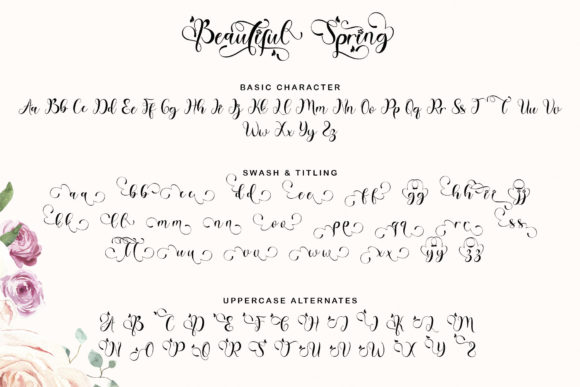 Beautiful Spring
BASIC CHARACTER
Aa Bb Cc Dd Ee Ff Gg Hh Ii Jj Kk Ll Mm Nn Oo Pp Qq Rr Ss T t Uu Vv
Ww Xx Yy Zz
SWASH & TITLING
aa bb cc dd ee ff gg hh ii jj
kk ll mm nn oo pp qq rr ss
tt uu vv ww xx yy zz
UPPERCASE ALTERNATES
A B C D E F G H I J K L M
N O P Q R S T U V W X Y Z